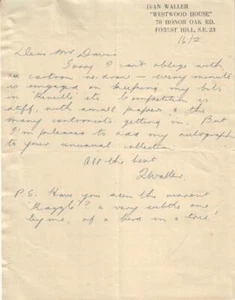 IVAN WALLER
"WESTWOOD HOUSE"
70 HONOR OAK RD.
FOREST HILL, S.E. 23
Dear Mr Davis
Sorry I can't oblige with
a cartoon re-draw — every minute
is engaged on keeping my bits
in Razzle etc. Competition is
stiff, with small papers & the
many cartoonists getting in. But
I'm pleased to add my autograph
to your unusual collection
All the best
Waller.
P.S. Have you seen the current
"Razzle"? a very subtle one
by me, of a bird in a tree!